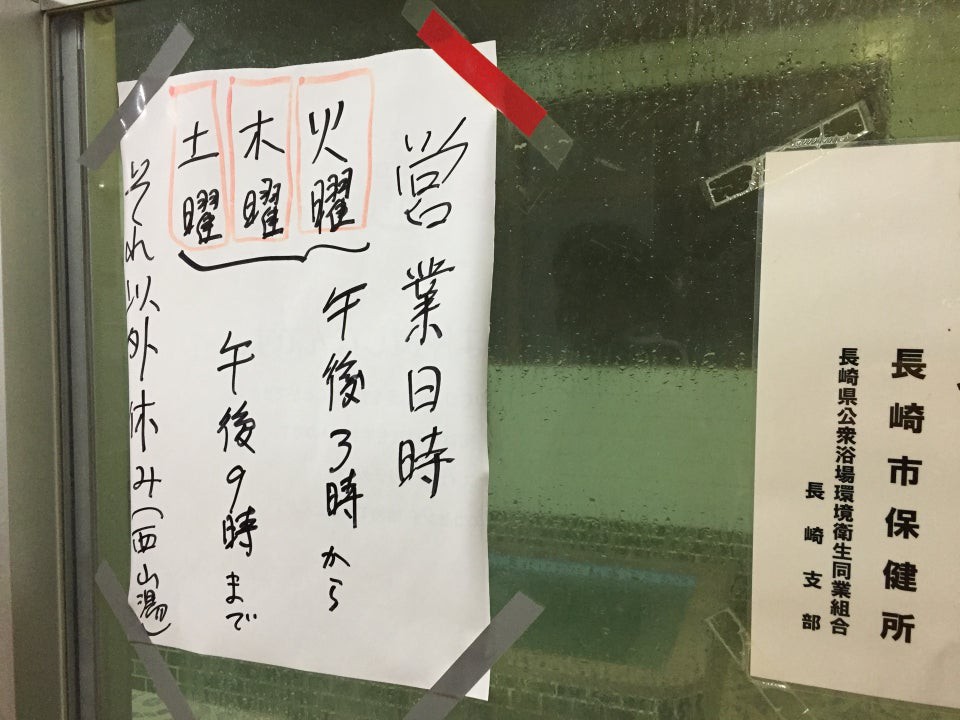 営業日時
火曜
木曜
土曜
午後3時から
午後9時まで
それ以外休み(西山湯)
長崎市保健所
長崎県公衆浴場環境衛生同業組合
長崎支部